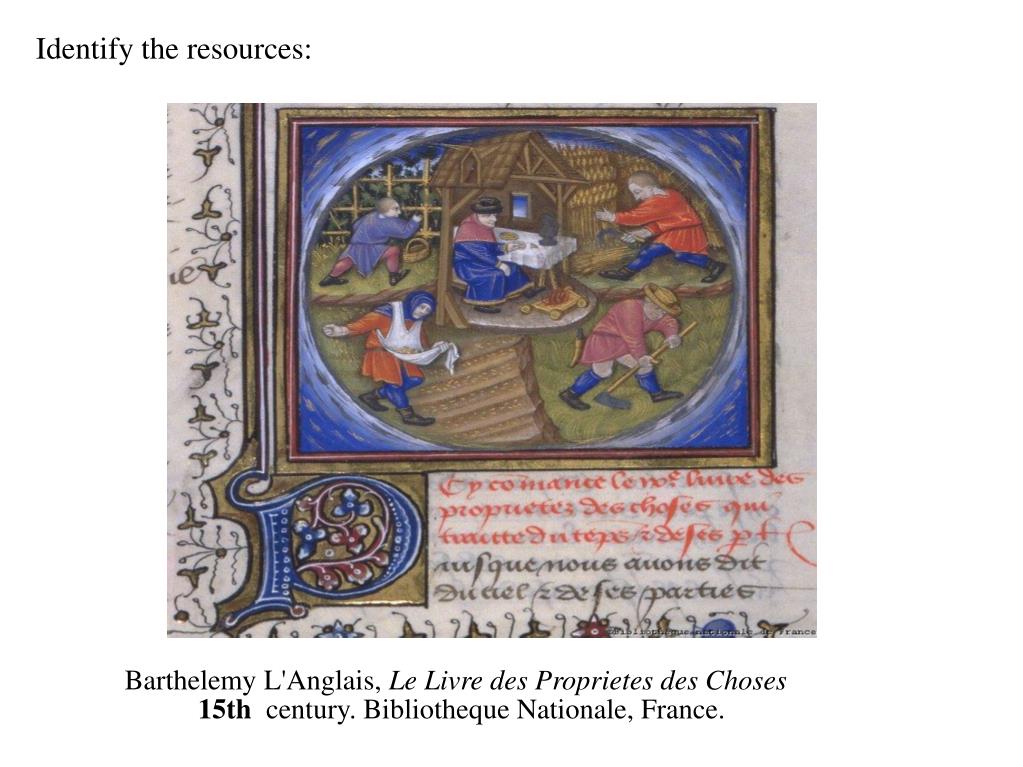 Identify the resources:
Cy comance le ixe livre des
proprietez des choses qui
traitte du teps et de ses
P
uisque nous avons dit
du ciel et de ses parties
©Bibliothèque nationale de France
Barthelemy L'Anglais, Le Livre des Proprietes des Choses
15th century. Bibliotheque Nationale, France.